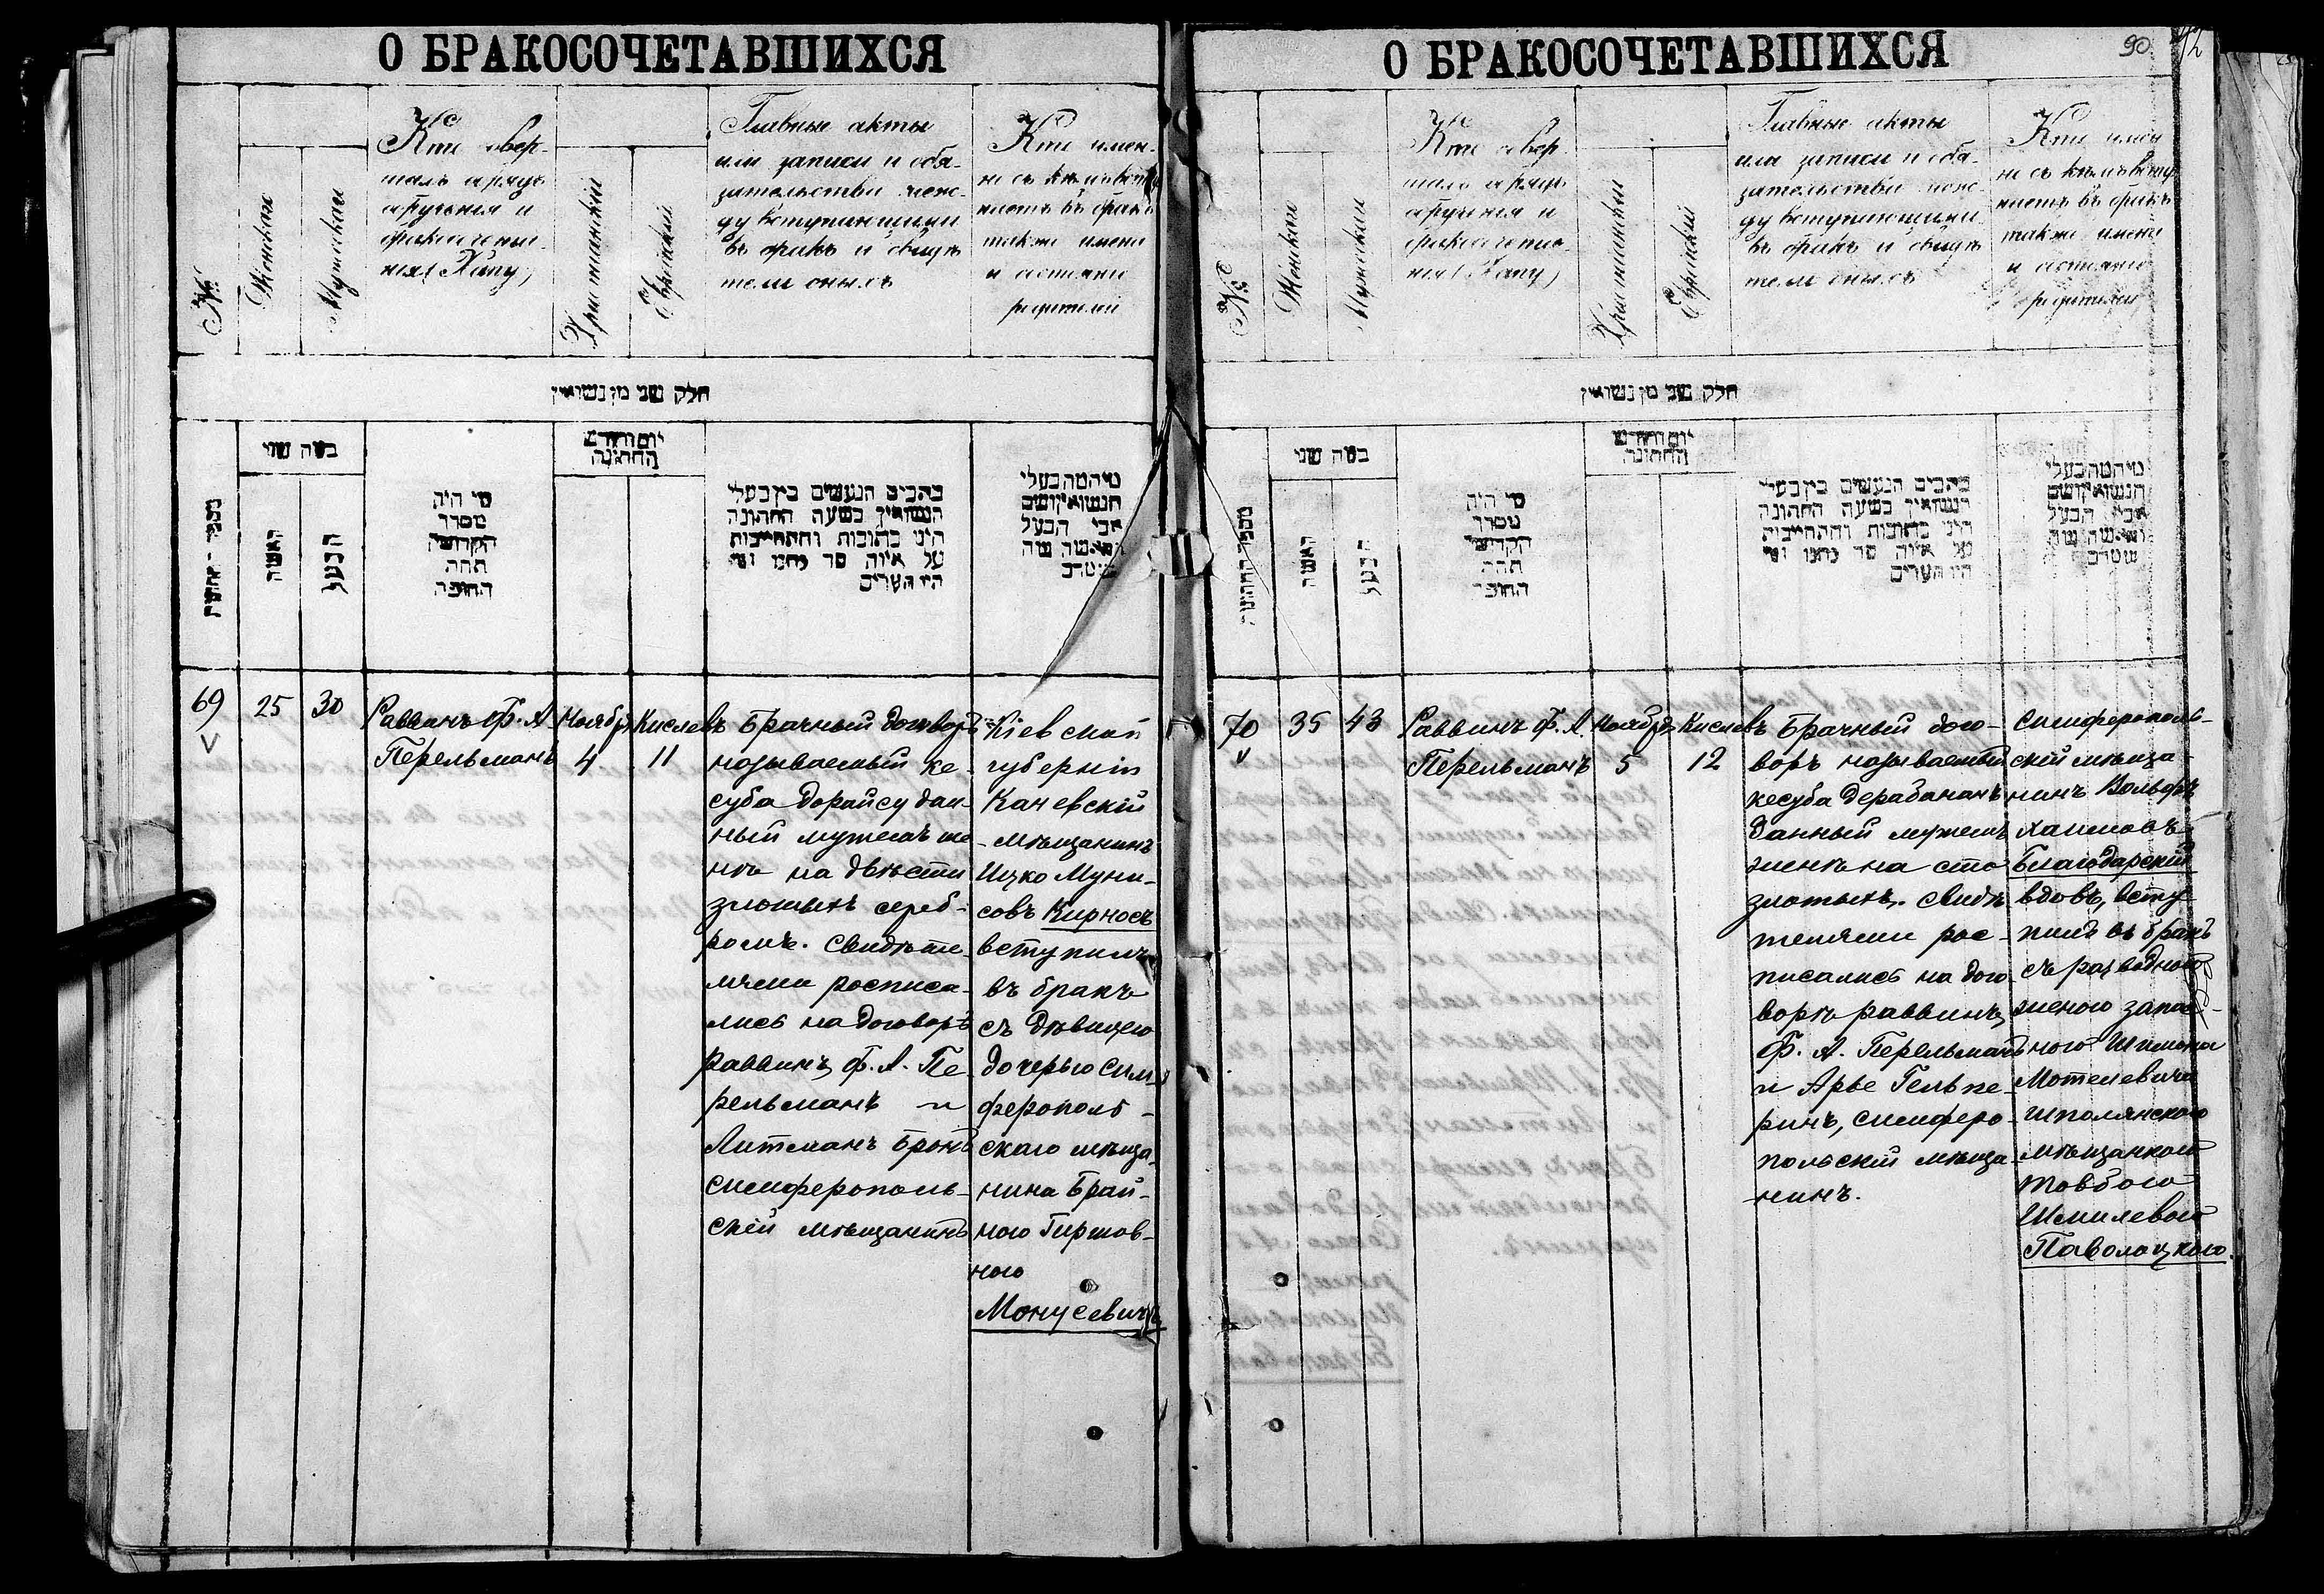 О БРАКОСОЧЕТАВШИХСЯ
№
Женскаго
Мужескаго
Кто совер-
шалъ обрядъ
обрученія и
бракосочета-
нія (Хупу)
Христіанскій
Еврейскій
Главные акты
или записи и обя-
зательства меж-
ду вступающими
въ бракъ и свидѣ
тели оныхъ
Кто имен-
но съ кѣмъ всту
паетъ въ бракъ
также имена
и состояніе
родителей
חלק שני מן נשואין
בטה שני
האשה
הבעל
מי היה
מסדר
הקדושין
תחת
החופה
יום וחודש
החתונה
כתבים הנעשים בין בעלי
הנשואין בשעה החתונה
היינו כתובות והתחייבות
על איזה סך נתנו ומי
היו העדים
הנשואין ושם
אבי הבעל
69
25
30
Раввинъ Ф. А.
Перельманъ
Ноября
4
Кислевъ
11
Брачный договоръ
называемый ке-
суба дорайсу дан-
ный мужемъ же
нѣ на двѣсти
злотыхъ сереб-
ромъ. Свидѣте-
лями росписа-
лись на договорѣ
раввинъ Ф. А. Пе-
рельманъ и
Литманъ Бронъ
симферополь-
скій мѣщанинъ
Кіевской
губерніи
Каневскій
мѣщанинъ
Ицко Муни-
совъ Кирносъ
вступилъ
въ бракъ
съ дѣвицею
дочерью сим-
ферополь-
скаго мѣща-
нина Брай-
ною Гиршов-
ною
Монусевичъ
О БРАКОСОЧЕТАВШИХСЯ
90
92
№
Женскаго
Мужескаго
Кто совер-
шалъ обрядъ
обрученія и
бракосочета-
нія (Хупу)
Христіанскій
Еврейскій
Главные акты
или записи и обя-
зательства меж-
ду вступающими
въ бракъ и свидѣ
тели оныхъ
Кто имен
но съ кѣмъ всту
паетъ въ бракъ
также имена
и состояніе
родителей
חלק שני מן נשואין
בטה שני
האשה
הבעל
מי היה
מסדר
הקדושין
תחת
החופה
יום וחודש
החתונה
כתבים הנעשים בין בעלי
הנשואין בשעה החתונה
היינו כתובות והתחייבות
על איזה סך נתנו ומי
היו העדים
הנשואין ושם
אבי הבעל
70
35
43
Раввинъ Ф. А.
Перельманъ
Ноября
5
Кислевъ
12
Брачный дого-
воръ называемый
кесуба дерабананъ
данный мужемъ
женѣ на сто
злотыхъ. Свидѣ
телями рос-
писались на дого-
ворѣ раввинъ
Ф. А. Перельманъ
и Арье Гельпе-
ринъ, симферо-
польскій мѣща-
нинъ.
симферополь-
скій мѣща-
нинъ Вольфъ
Хаимовъ
Благодарскій
вдовъ, всту-
пилъ въ бракъ
съ разводною
женою запас-
ного Шимона
Мотелевича
шполянскою
мѣщанкою
Товбою
Шмилевой
Паволоцкою.